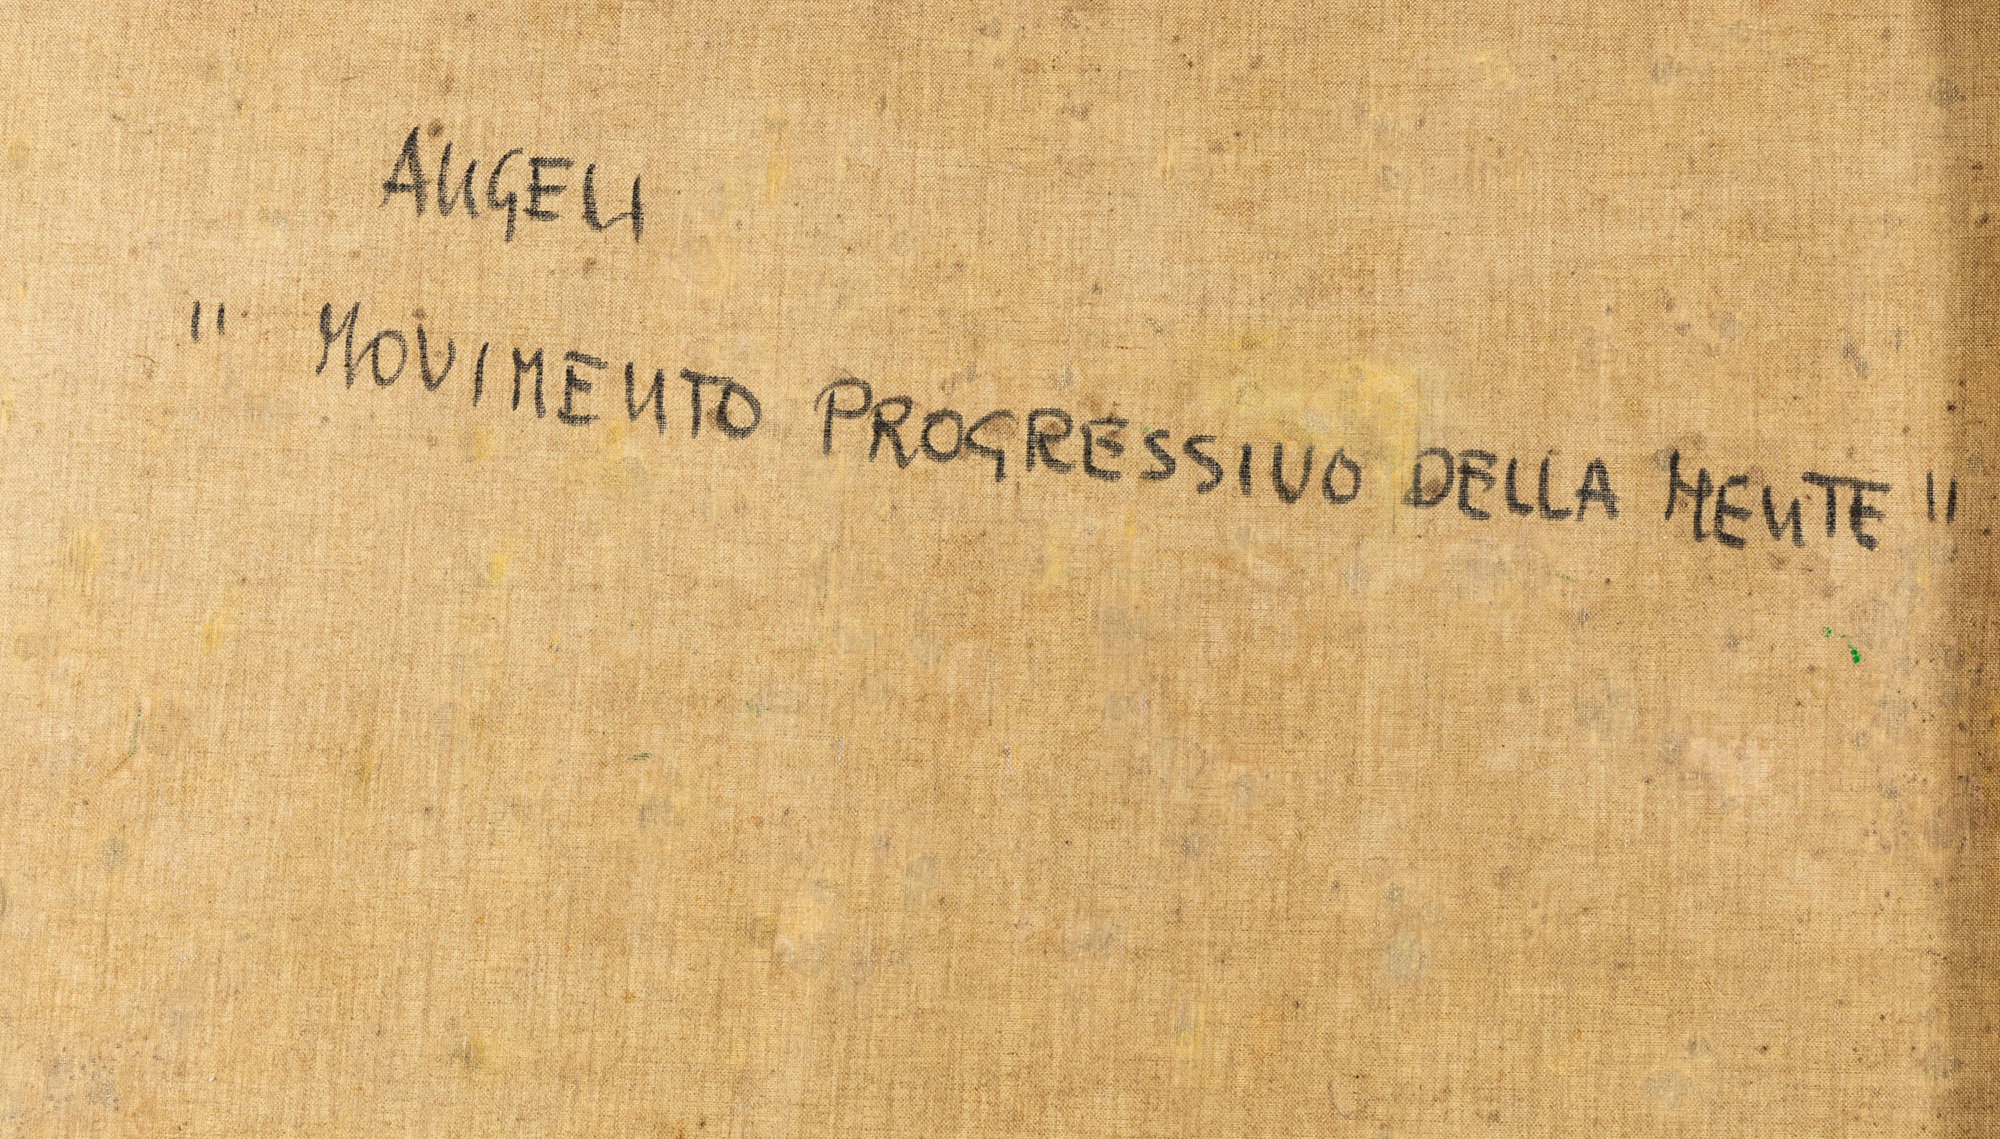 ANGELI
" MOVIMENTO PROGRESSIVO DELLA MENTE "